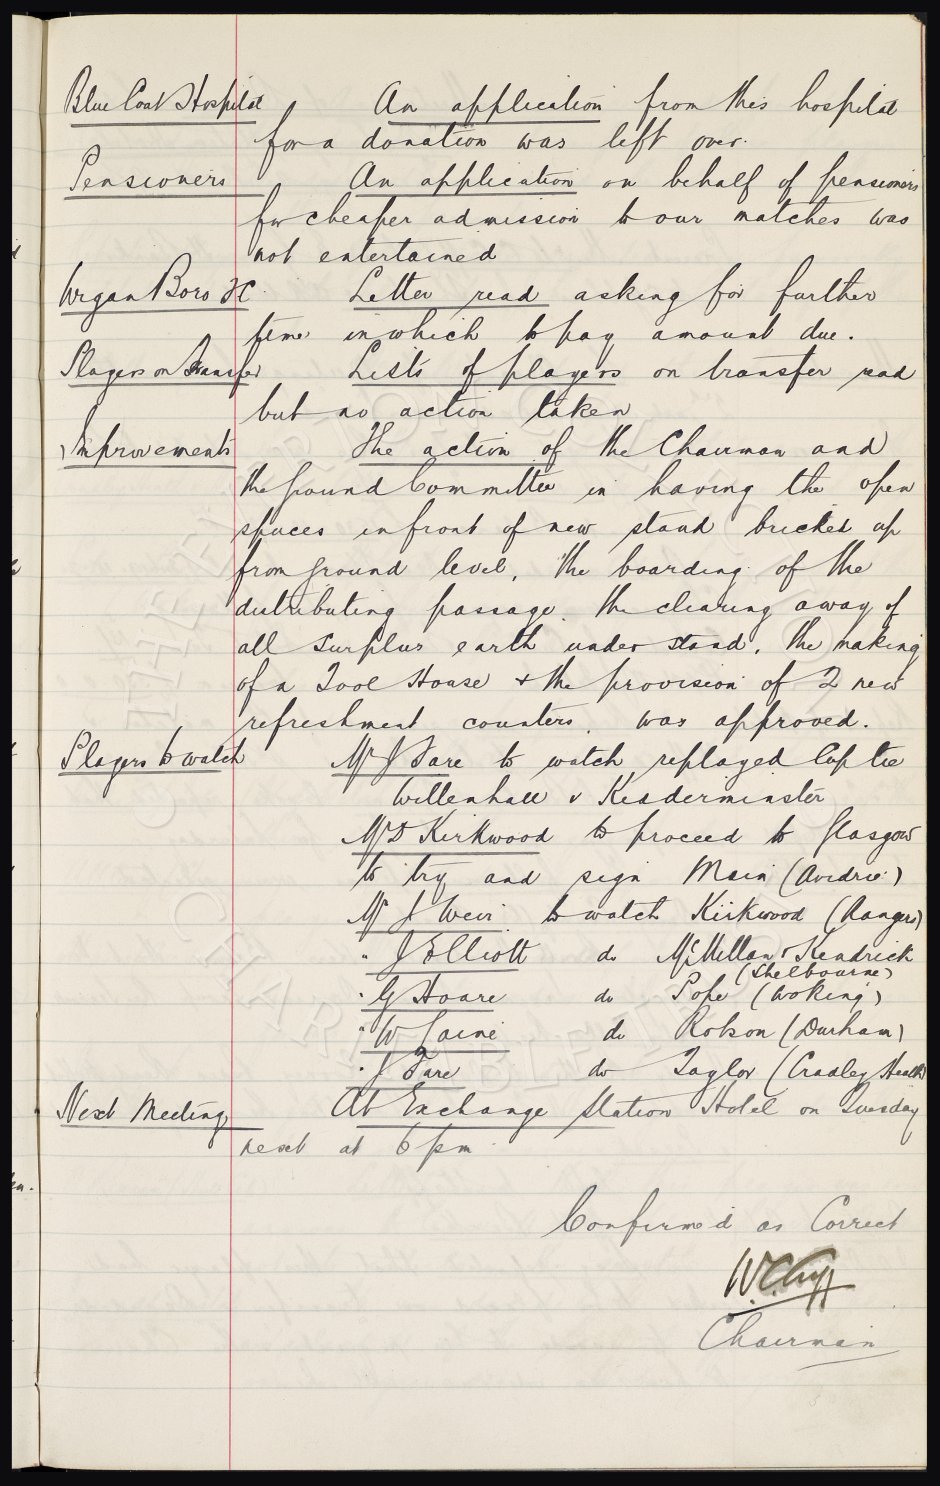 Blue Coat Hospital An application from this hospital
for a donation was left over.
Pensioners An application on behalf of pensioners
for cheaper admission to our matches was
not entertained
Wigan Boro FC Letter read asking for further
time in which to pay amount due.
Players on Transfer Lists of players on transfer read
but no action taken
Improvements The action of the Chairman and
the Ground Committee in having the open
spaces in front of new stand bricked up
from ground level, the boarding of the
distributing passage, the clearing away of
all surplus earth under stand, the making
of a Tool House & the provision of 2 new
refreshment counters, was approved.
Players to watch Mr J Fare to watch replayed Cup tie
Willenhall v Kidderminster
Mr D Kirkwood to proceed to Glasgow
to try and sign Main (Airdrie)
Mr J Weir to watch Kirkwood (Rangers)
" J Elliott do McMillan & Kendrick
(Shelbourne)
" G Hoare do Pope (Woking)
" W do Robson (Durham)
" J Fare do Taylor (Cradley Heath)
Next Meeting At Exchange Station Hotel on Tuesday
next at 6 pm
Confirmed as Correct
W.C. Cuff
Chairman